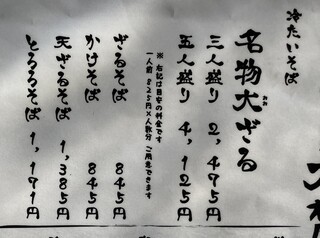 冷たいそば
名物大ざる
おお
三人盛り 2,475円
五人盛り 4,125円
※ 右記は目安の料金です
一人前 825円×人数分 ご用意できます
ざるそば 845円
かけそば 845円
天ざるそば 1,385円
とろろそば 1,191円